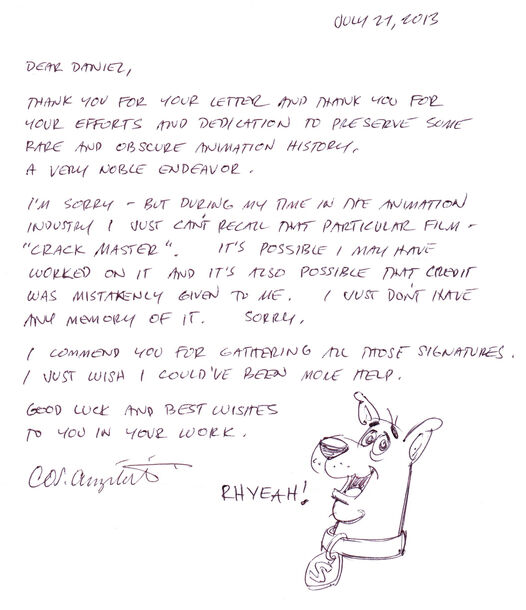 JULY 21, 2013
DEAR DANIEL,
THANK YOU FOR YOUR LETTER AND THANK YOU FOR
YOUR EFFORTS AND DEDICATION TO PRESERVE SOME
RARE AND OBSCURE ANIMATION HISTORY.
A VERY NOBLE ENDEAVOR.
I'M SORRY - BUT DURING MY TIME IN THE ANIMATION
INDUSTRY I JUST CAN'T RECALL THAT PARTICULAR FILM -
"CRACK MASTER". IT'S POSSIBLE I MAY HAVE
WORKED ON IT AND IT'S ALSO POSSIBLE THAT CREDIT
WAS MISTAKENLY GIVEN TO ME. I JUST DON'T HAVE
ANY MEMORY OF IT. SORRY.
I COMMEND YOU FOR GATHERING ALL THOSE SIGNATURES.
I JUST WISH I COULD'VE BEEN MORE HELP.
GOOD LUCK AND BEST WISHES
TO YOU IN YOUR WORK.
RHYEAH!
S